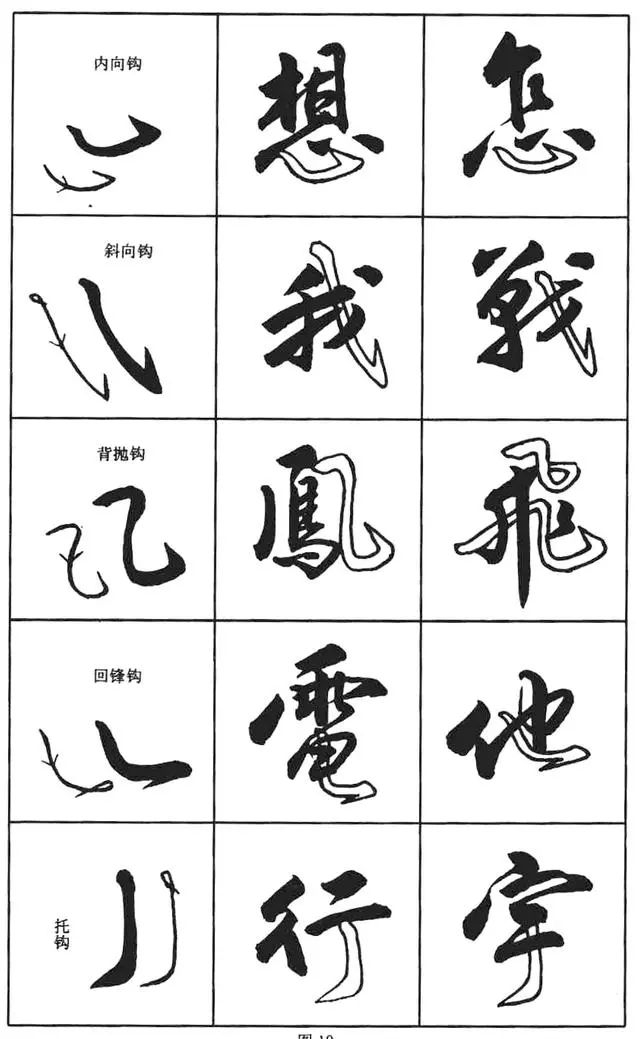 内向钩
想
怎
斜向钩
我
戰
背抛钩
鳳
飛
回锋钩
電
他
托钩
行
宇
图 19